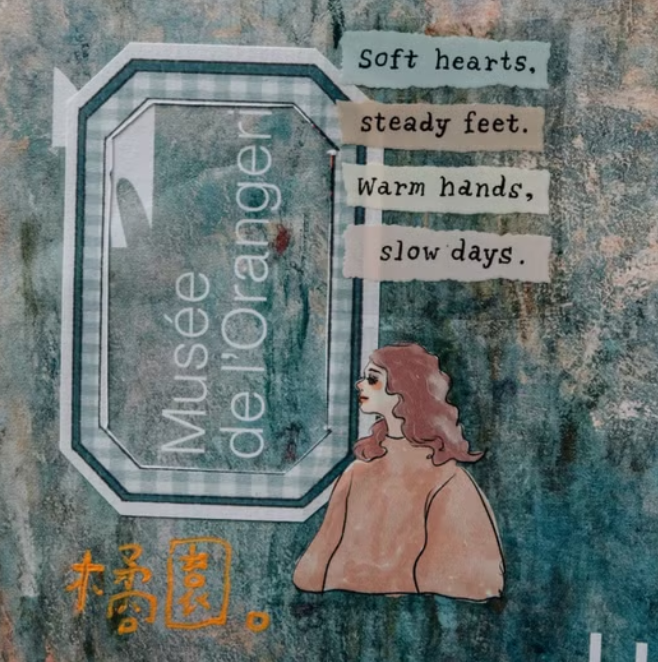 Soft hearts,
steady feet.
Warm hands,
slow days.
Musée
de l'Oranger
橘園。